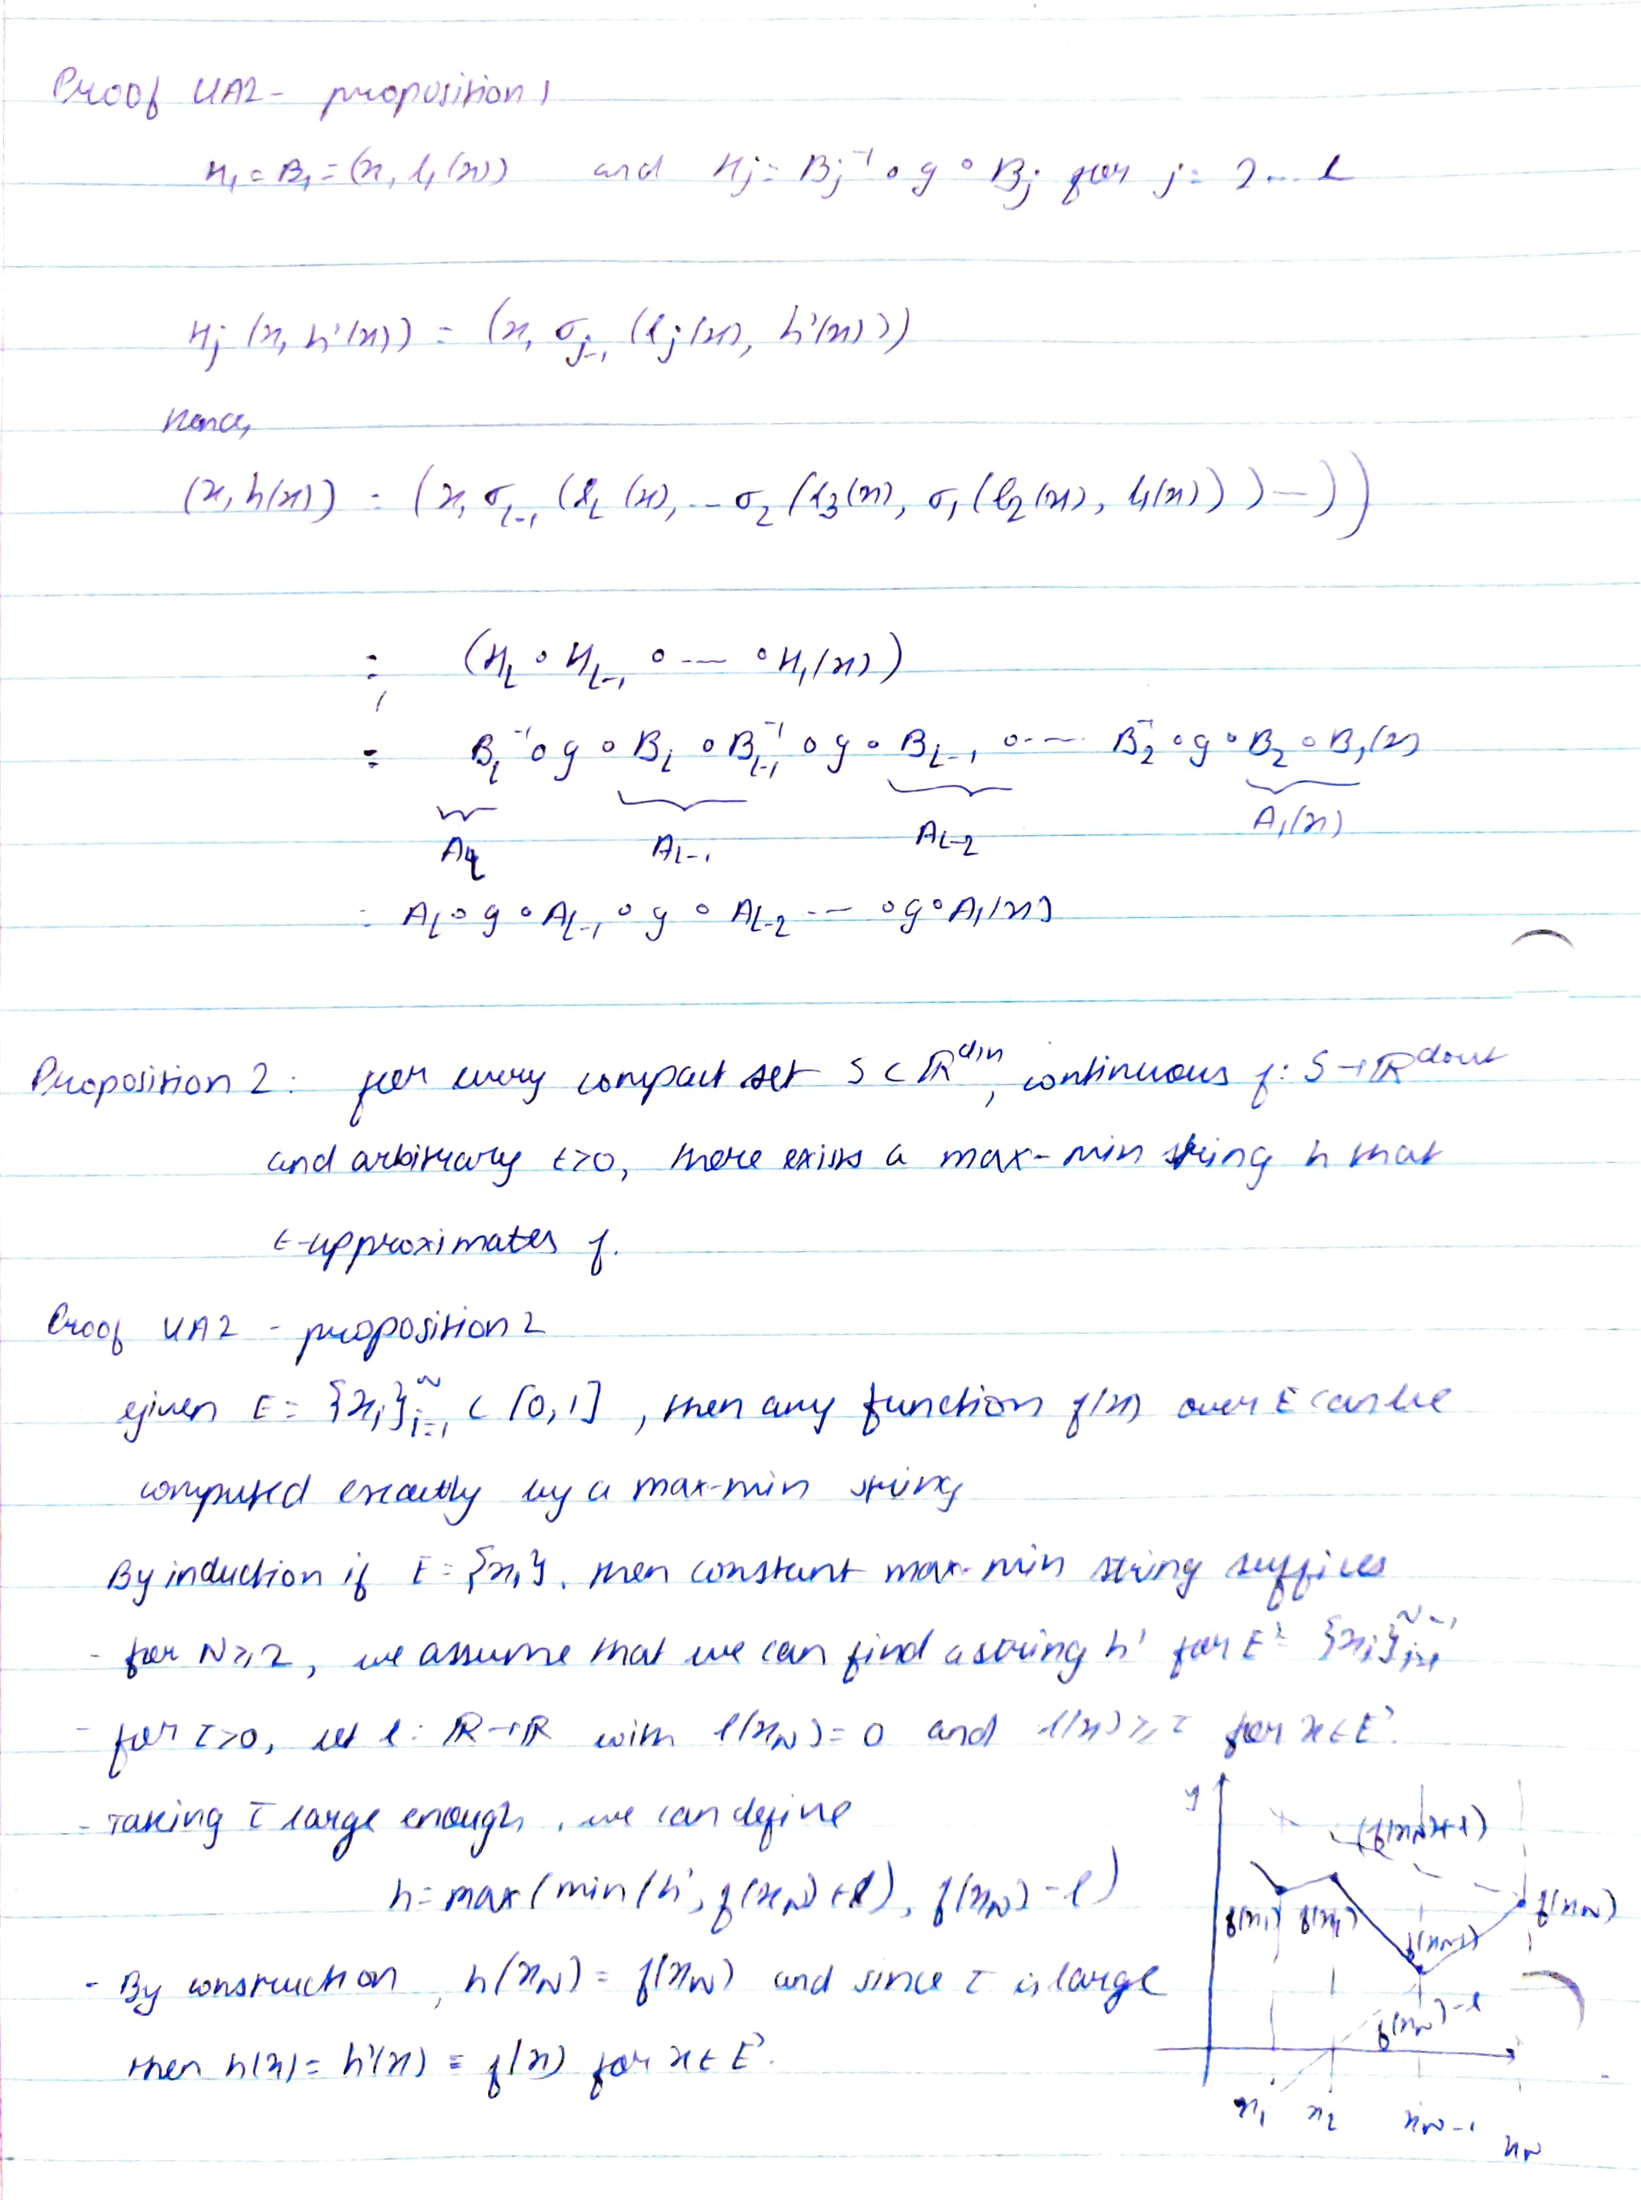 Proof UA2 - proposition 1
H₁ = B₁ = (x, l₁(x)) and Hj = Bj⁻¹ ∘ g ∘ Bj for j = 2 ... L
Hj (x, h'(x)) = (x, σj-1 (lj(x), h'(x)))
Hence,
(x, h(x)) = (x, σL-1 (lL (x), ... σ2 (l3(x), σ1 (l2(x), l1(x))) ... ))
= (HL ∘ HL-1 ∘ ... ∘ H1(x))
= BL⁻¹ ∘ g ∘ BL ∘ BL-1⁻¹ ∘ g ∘ BL-1 ∘ ... B2⁻¹ ∘ g ∘ B2 ∘ B1(x)
AL AL-1 AL-2 A1(x)
= AL ∘ g ∘ AL-1 ∘ g ∘ AL-2 ... ∘ g ∘ A1(x)
Proposition 2: for every compact set S ⊂ ℝ^din, continuous f: S → ℝ^dout
and arbitrary ε>0, there exists a max-min string h that
ε-approximates f.
Proof UA2 - proposition 2
given E = {xi}ᴺi=1 ⊂ [0,1], then any function f(x) over E can be
computed exactly by a max-min string
By induction if E = {x1}, then constant max-min string suffices
- for N ≥ 2, we assume that we can find a string h' for E' = {xi}ᴺ⁻¹i=1
- for τ>0, let l: ℝ → ℝ with l(xN) = 0 and l(x) ≥ τ for x ∈ E'.
- Taking τ large enough, we can define
h = max(min(h', f(xN) + l), f(xN) - l)
- By construction, h(xN) = f(xN) and since τ is large
then h(x) = h'(x) = f(x) for x ∈ E'.
y
(f(xN)+l)
f(x1) f(x2) f(xN-1) f(xN)
f(xN) - l
x1 x2 xN-1 xN